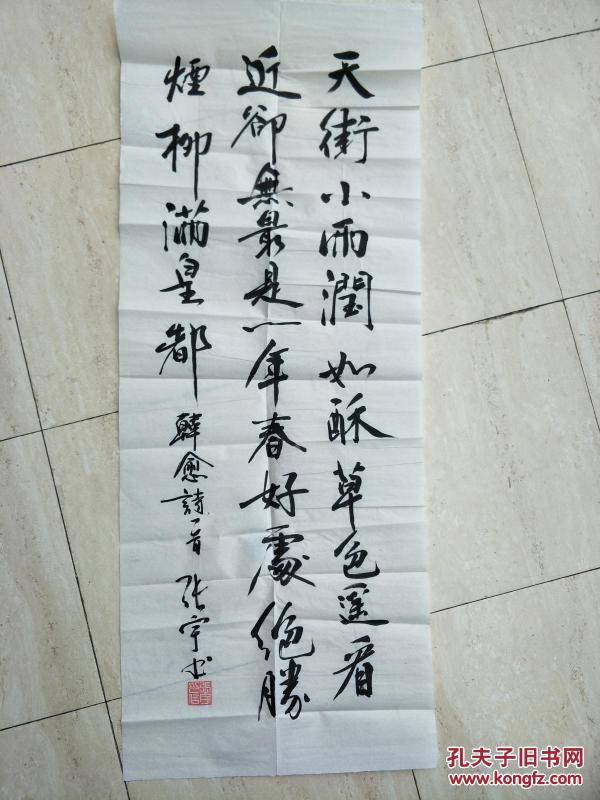 天街小雨潤如酥草色遥看
近卻無最是一年春好處絶勝
煙柳滿皇都 韓愈詩一首 张宇书
孔夫子旧书网
www.kongfz.com